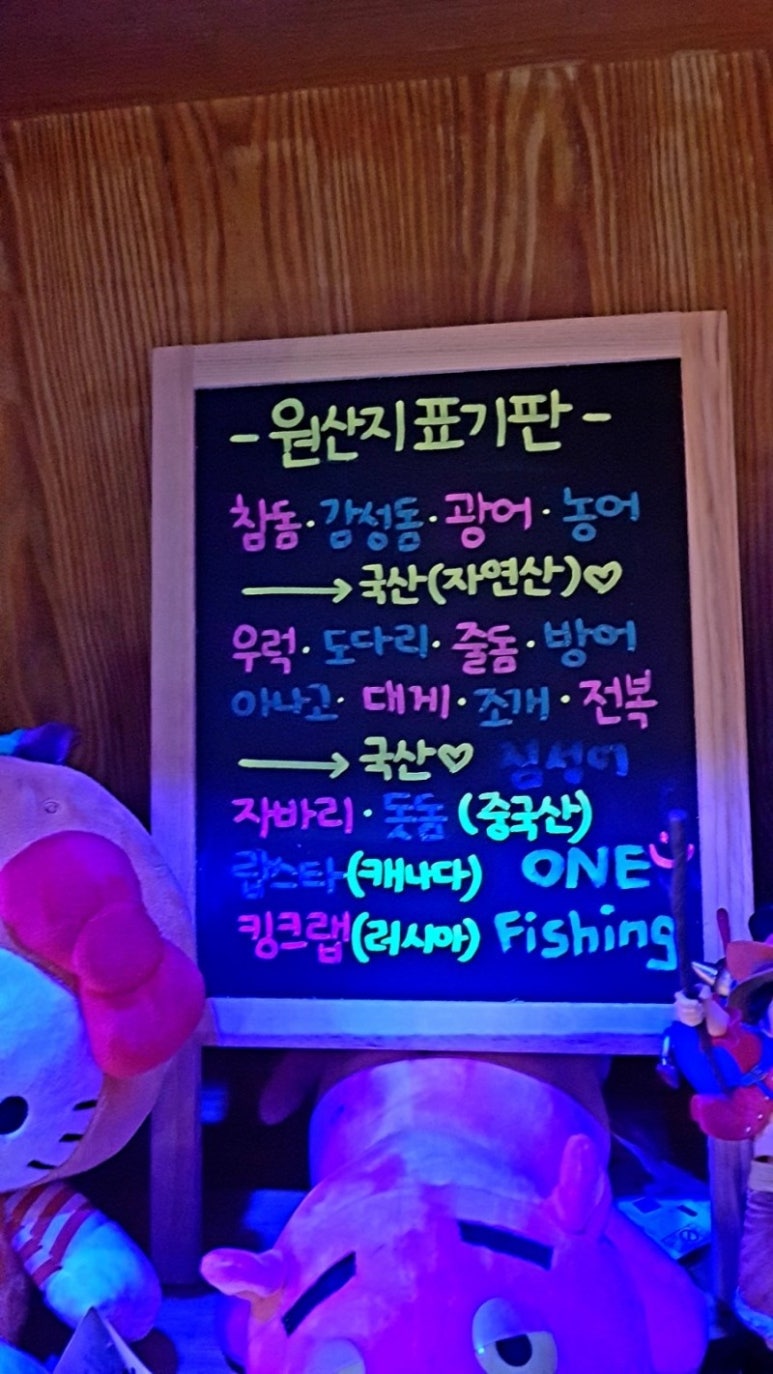 - 원산지표기판 -
참돔 · 감성돔 · 광어 · 농어
→ 국산(자연산)♡
우럭 · 도다리 · 줄돔 · 방어
아나고 · 대게 · 조개 · 전복
→ 국산♡ 점성어
자바리 · 돗돔 (중국산)
랍스타(캐나다) ONE
킹크랩(러시아) Fishing